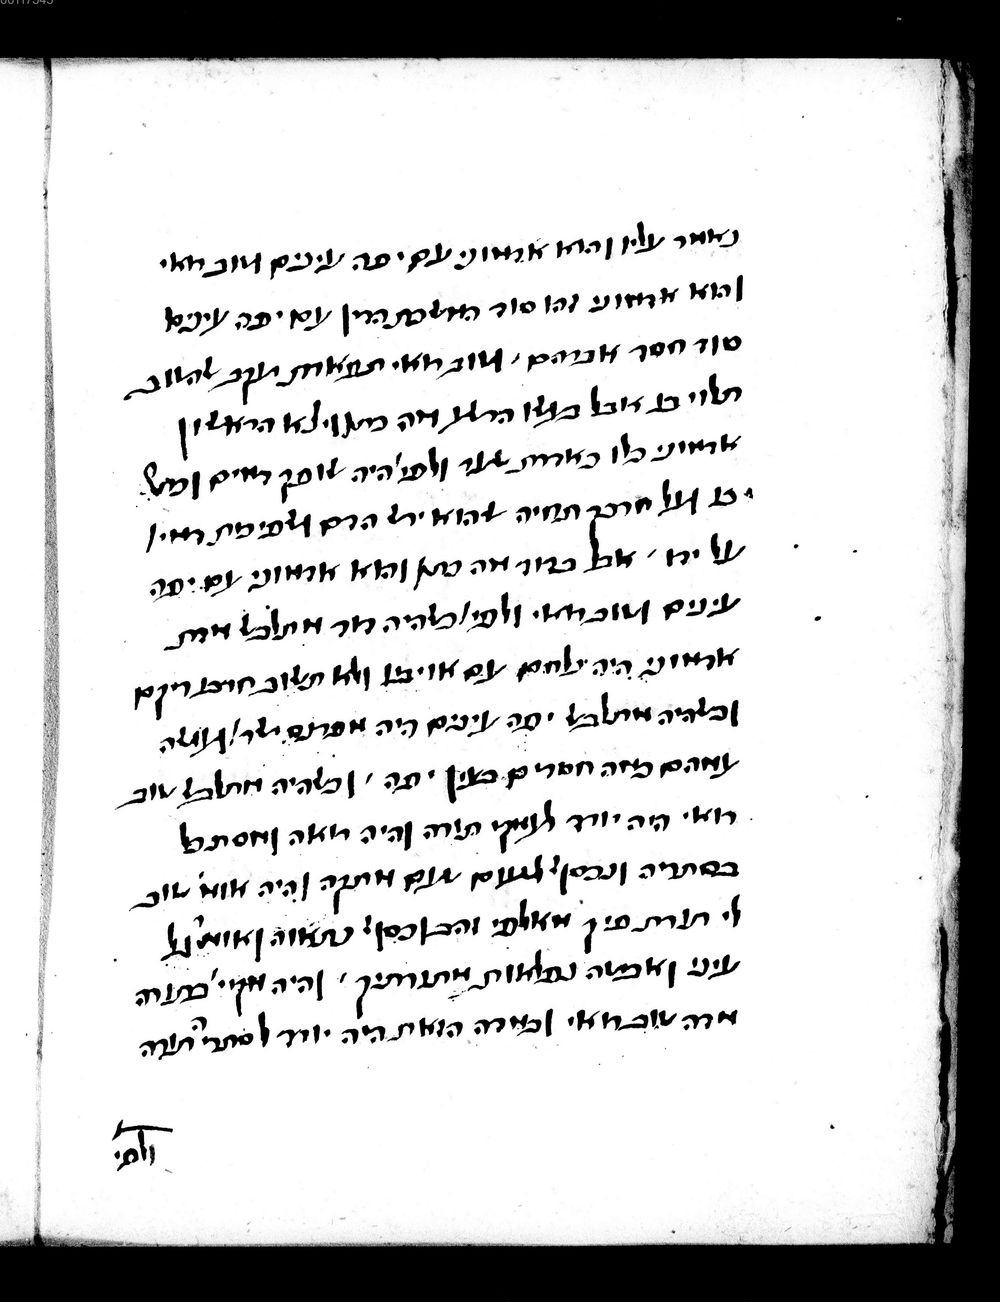 נאמר עליו והוא אדמוני עם יפה עינים וטוב ראי
והוא אדמוני זהו סוד המשכת הדין עם יפה עינים
סוד חסד אברהם, וטוב ראי תפארת יעקב שהטוב
תלוי בו אבל בעשו הרשע מה כתי' ויצא הראשון
אדמוני כלו כאדרת שער ולפי' היה שופך דמים
יבו ועל חרבך תחיה שהוא יצר הרע ושפיכת דמי'
על ידו, אבל בדוד מה כתי' והוא אדמוני עם יפה
עינים וטוב ראי ולפי' כשהיה דוד מתלבש מדת
אדמוני היה נלחם עם אויביו ולא תשוב חרבו ריקם
וכשהיה מתלבש יפה עינים היה מפרנס ישר' ועושה
עמהם כמה חסדים בעין יפה, וכשהיה מתלבש טוב
ראי היה יורד לעמקי תורה והיה רואה ומסתכל
בסתריה ונכסף לטעום טעם מתקה והיה אומ' טוב
לי תורת פיך מאלפי זהב וכסף נתאוה ואומ' גל
עיני ואביטה נפלאות מתורתיך, והיה מקיי' בתורה
מדה טוב ראי ובמדה הזאת היה יורד לסתרי תורה
ולפי